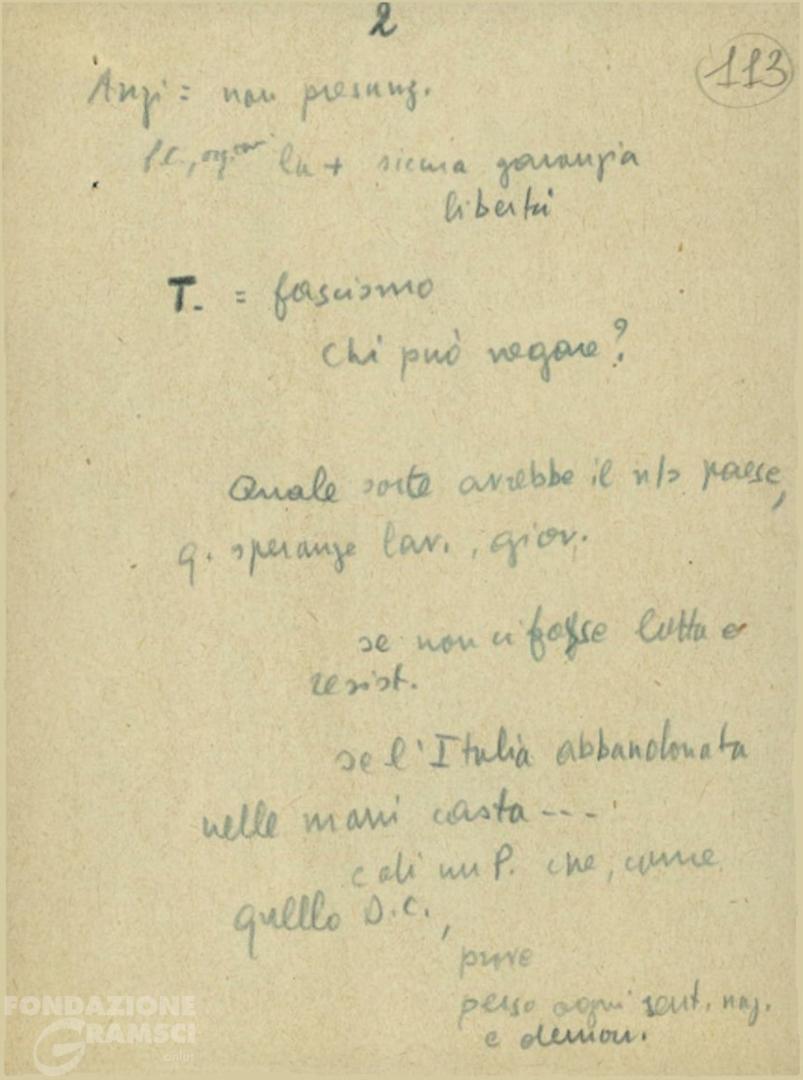 2
113
Anzi = non presunz.
P.C., org.oni la + sicura garanzia
libertà
T. = fascismo
Chi può negare?
Quale sorte avrebbe il n/s paese,
q. speranze lav., giov.
se non ci fosse lotta e
resist.
se l'Italia abbandonata
nelle mani casta ---
e di un P. che, come
quello D.C.,
perso ogni sent. naz.
e democr.
FONDAZIONE
GRAMSCI
onlus